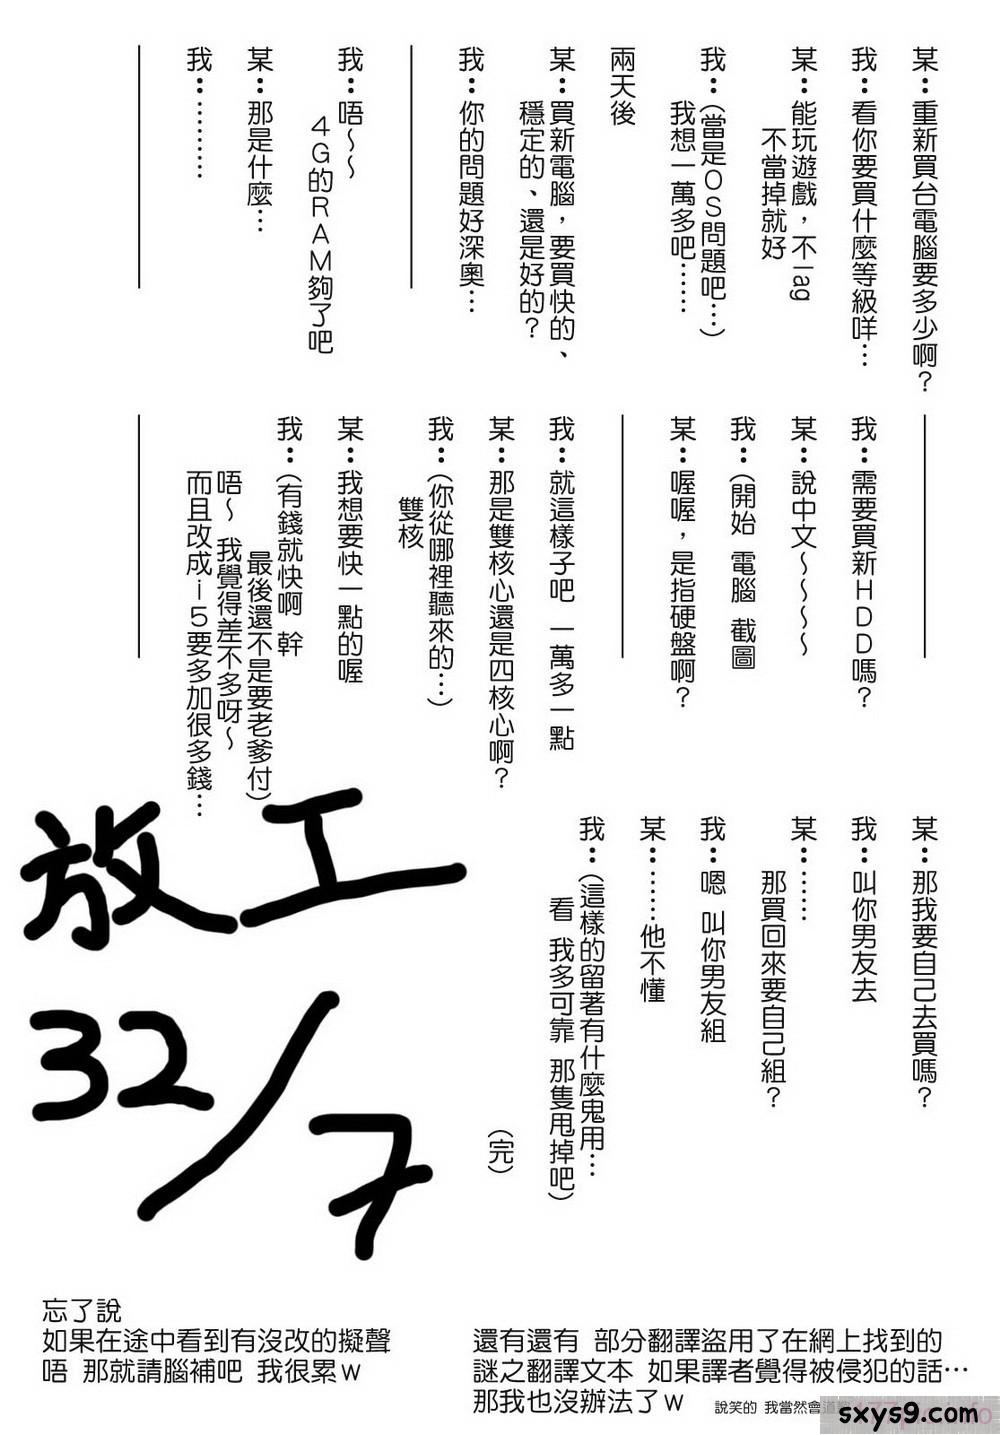 某：重新買台電腦要多少啊？
我：看你要買什麼等級咩…
某：能玩遊戲，不lag
不當掉就好
我：(當是OS問題吧…)
我想一萬多吧……
兩天後
某：買新電腦，要買快的、
穩定的、還是好的？
我：你的問題好深奧…
我：唔～～
4G的RAM夠了吧
某：那是什麼…
我：………
我：需要買新HDD嗎？
某：說中文～～～～
我：(開始 電腦 截圖
某：喔喔，是指硬盤啊？
我：就這樣子吧 一萬多一點
某：那是雙核心還是四核心啊？
我：(你從哪裡聽來的…)
雙核
某：我想要快一點的喔
我：(有錢就快啊 幹
最後還不是要老爹付)
唔～ 我覺得差不多呀～
而且改成i5要多加很多錢…
某：那我要自己去買嗎？
我：叫你男友去
某：……
那買回來要自己組？
我：嗯 叫你男友組
某：……他不懂
我：(這樣的留著有什麼鬼用…
看 我多可靠 那隻甩掉吧)
(完)
放工
32/7
忘了說
如果在途中看到有沒改的擬聲
唔 那就請腦補吧 我很累w
還有還有 部分翻譯盜用了在網上找到的
謎之翻譯文本 如果譯者覺得被侵犯的話…
那我也沒辦法了w
說笑的 我當然會道
sxys9.com